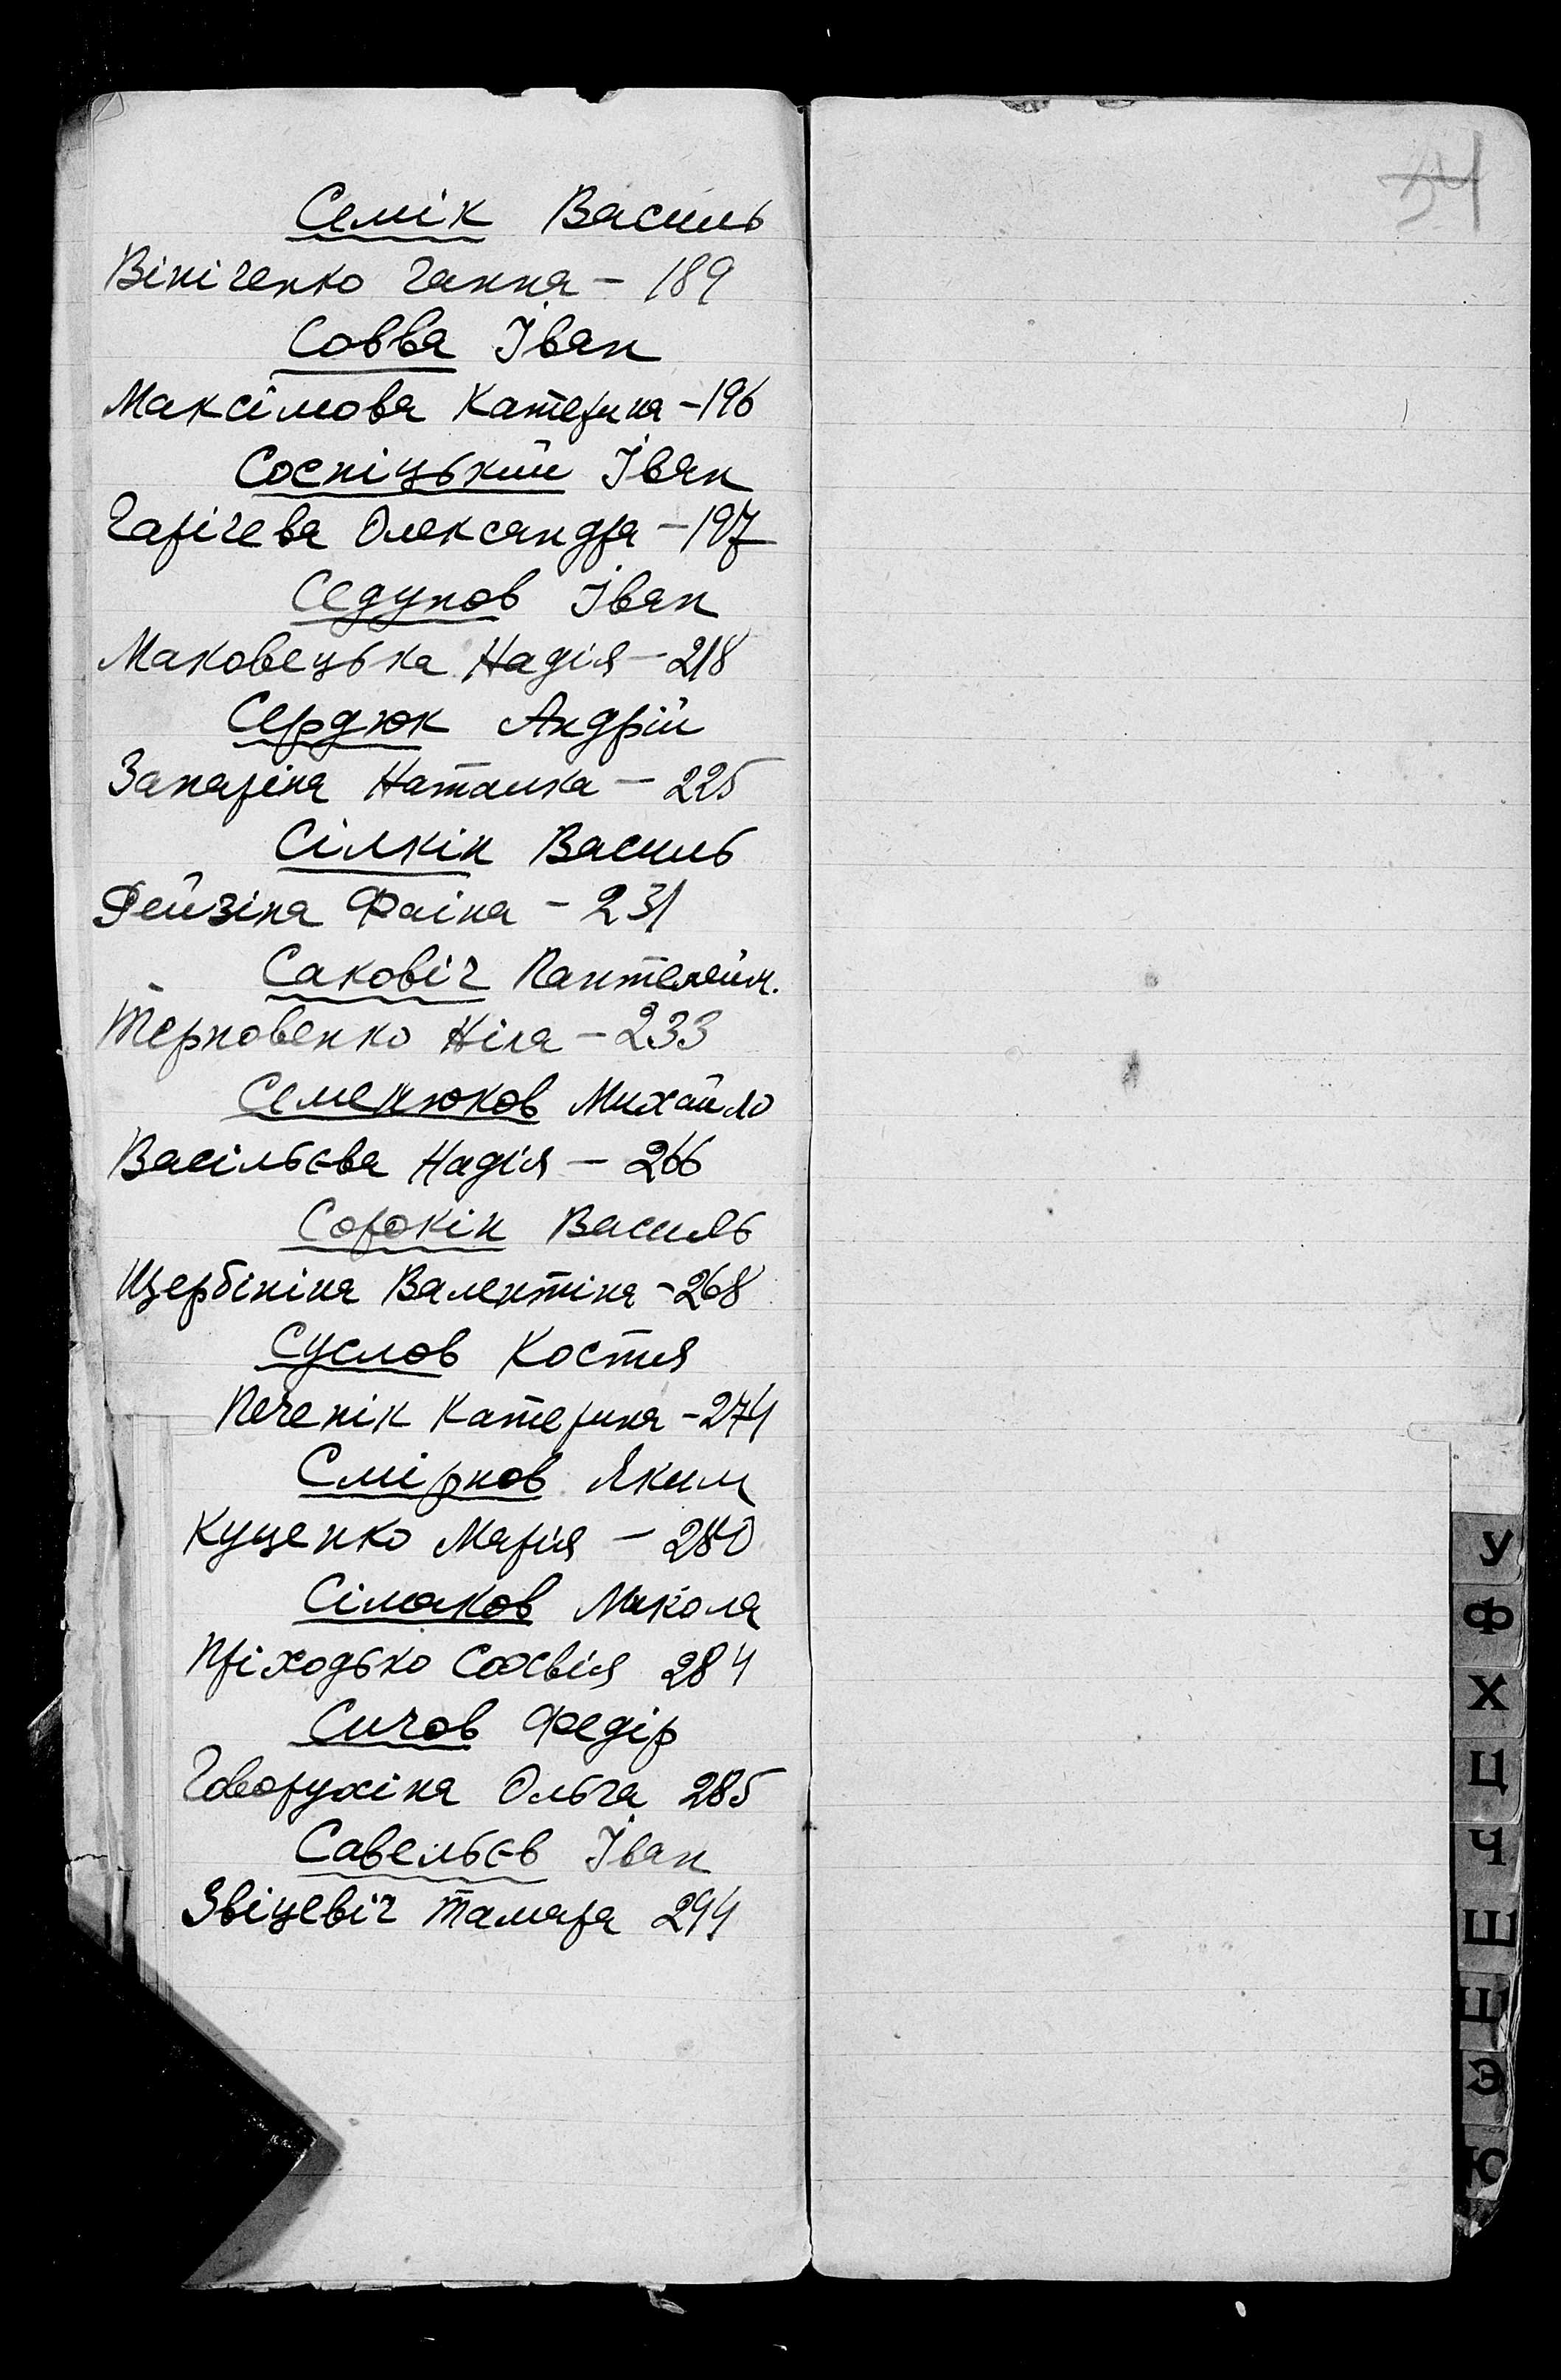 Семік Василь
Вініченко Ганна – 189
Совва Іван
Максімова Катерина – 196
Сосніцький Іван
Гарічева Олександра – 197
Седунов Іван
Маковецька Надія – 218
Сердюк Андрій
Запаріна Наталка – 225
Сілкін Василь
Фейзіна Фаіна – 231
Саковіч Пантелейм.
Терновенко Ніла – 233
Семенюков Михайло
Васільєва Надія – 266
Сорокін Василь
Щербініна Валентіна – 268
Суслов Костя
Печенік Катерина – 274
Смірнов Яким
Куценко Марія – 280
Сімаков Микола
Пріходько Софія 284
Сичов Федір
Говорухіна Ольга 285
Савельєв Іван
Звіцевіч Тамара 294
У
Ф
Х
Ц
Ч
Ш
Щ
Э
Ю